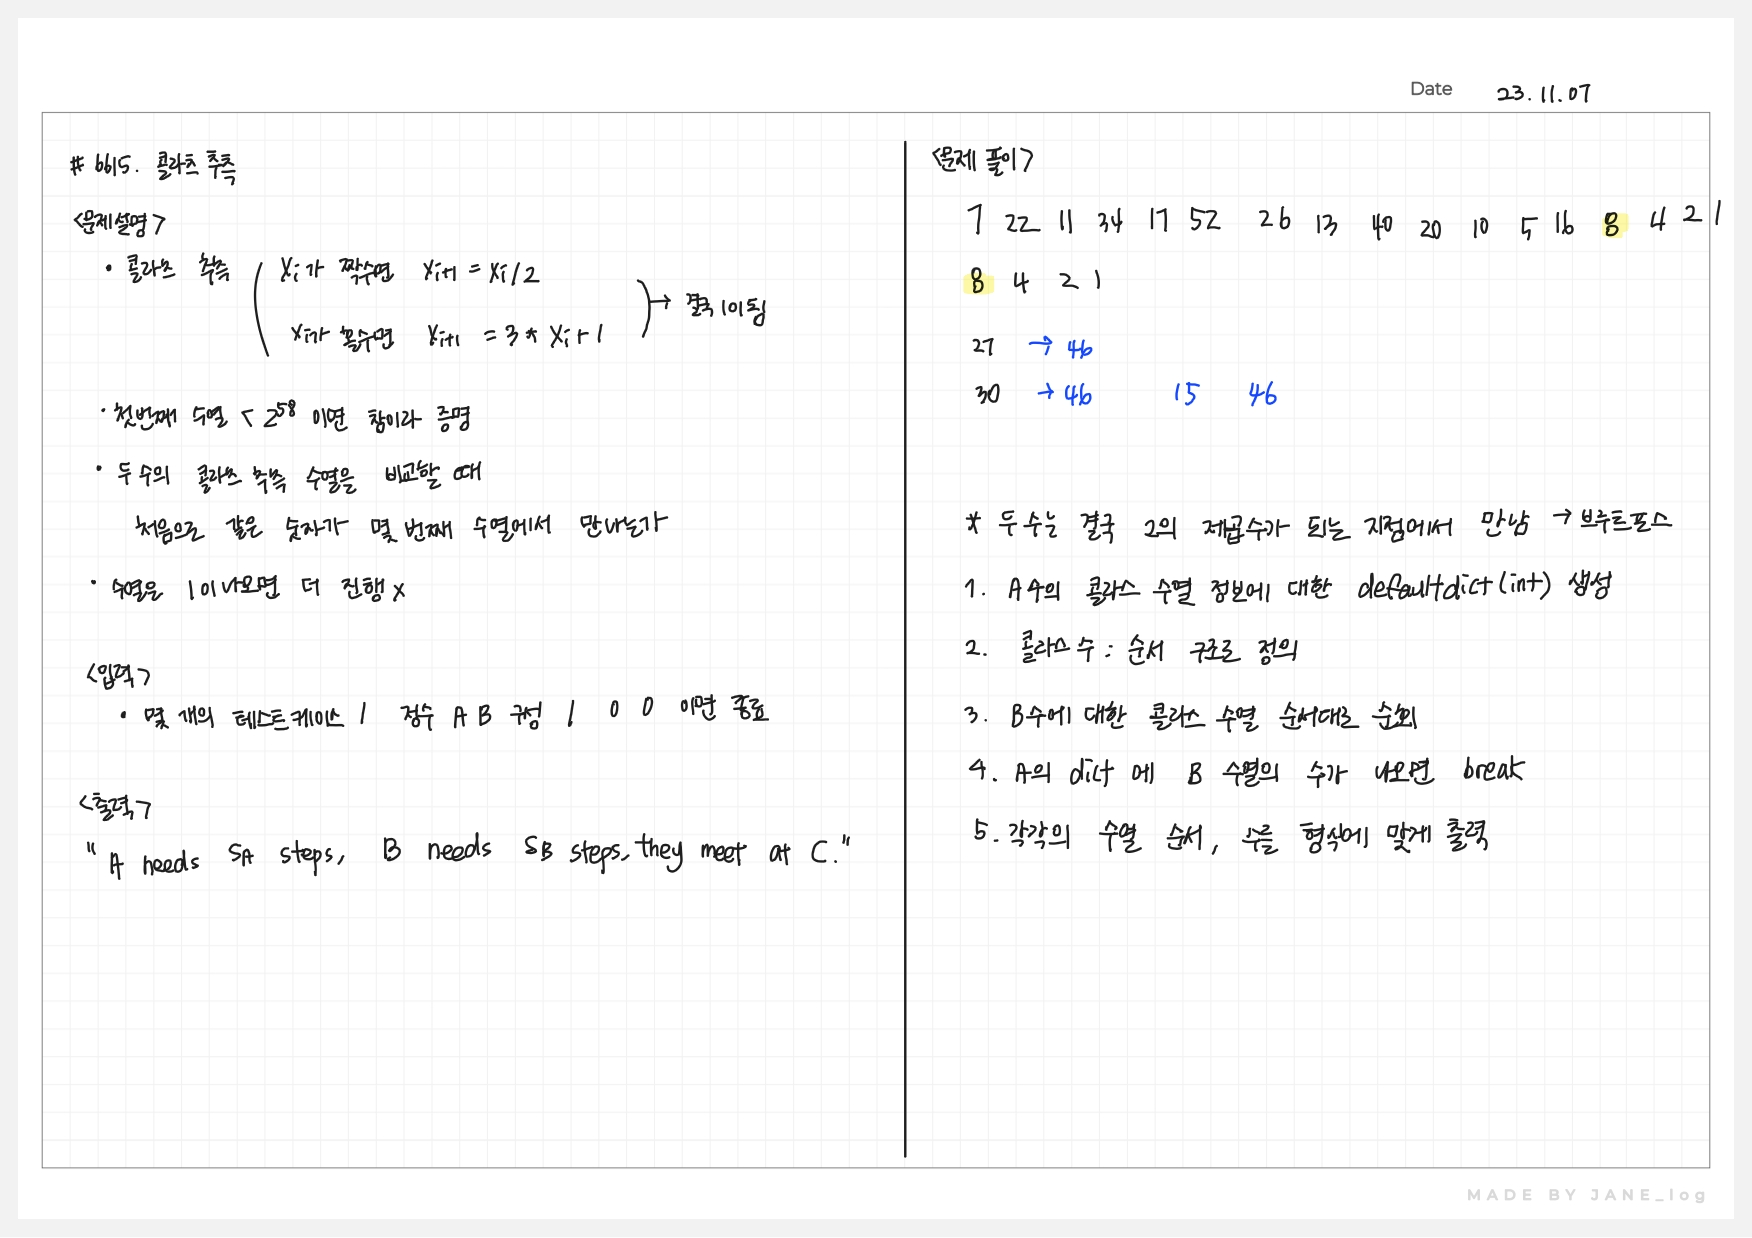 Date 23.11.07
# 6615. 콜라츠 추측
<문제설명>
• 콜라츠 추측 ( Xi가 짝수면 Xi+1 = Xi/2
Xi가 홀수면 Xi+1 = 3 * Xi + 1 ) → 결국 1이 됨
• 첫번째 수열 < 2^58 이면 참이라 증명
• 두 수의 콜라츠 추측 수열을 비교할 때
처음으로 같은 숫자가 몇 번째 수열에서 만나는가
• 수열은 1이 나오면 더 진행 x
<입력>
• 몇 개의 테스트케이스 / 정수 A B 구성 / 0 0 이면 종료
<출력>
" A needs SA steps, B needs SB steps, they meet at C."
<문제 풀이>
7 22 11 34 17 52 26 13 40 20 10 5 16 8 4 2 1
8 4 2 1
27 → 46
30 → 46 15 46
* 두 수는 결국 2의 제곱수가 되는 지점에서 만남 → 브루트포스
1. A수의 콜라스 수열 정보에 대한 defaultdict(int) 생성
2. 콜라스 수 : 순서 구조로 정의
3. B수에 대한 콜라스 수열 순서대로 순회
4. A의 dict 에 B 수열의 수가 나오면 break
5. 각각의 수열 순서, 수를 형식에 맞게 출력
MADE BY JANE_log